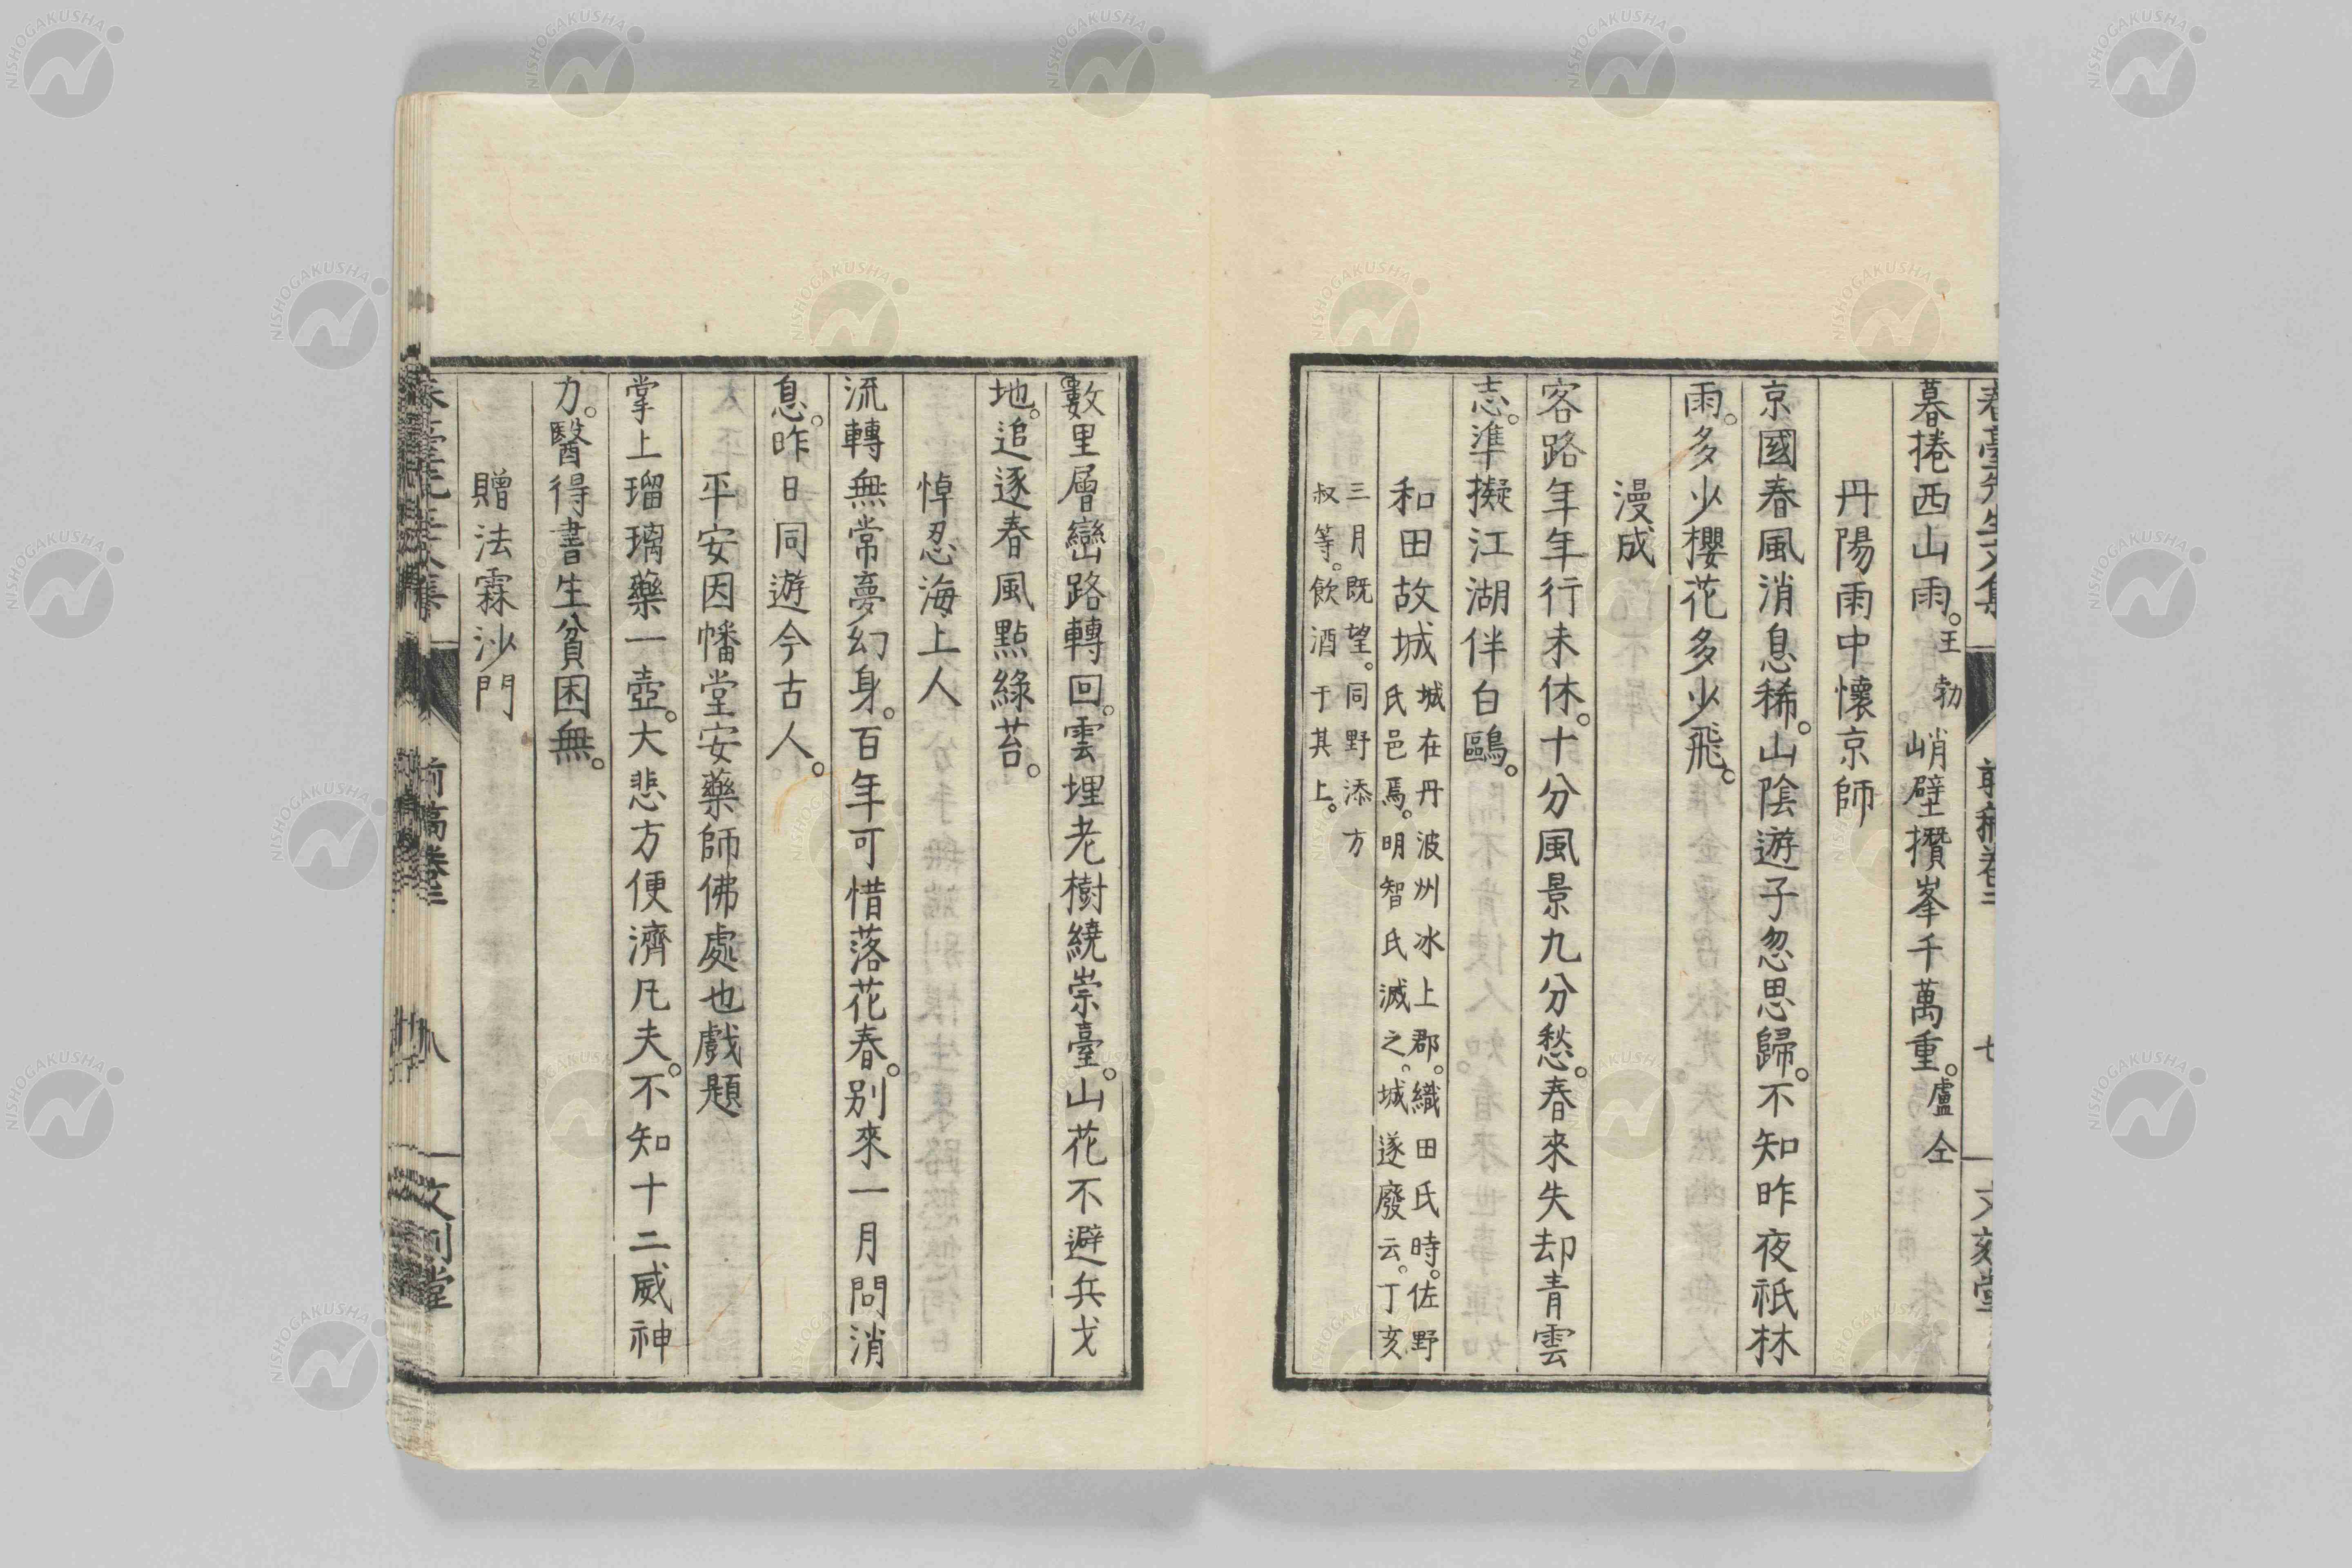 暮捲西山雨。王勃峭壁攢峯千萬重。盧仝
丹陽雨中懷京師
京國春風消息稀。山陰遊子忽思歸。不知昨夜祇林
雨。多少櫻花多少飛。
漫成
客路年年行未休。十分風景九分愁。春來失却青雲
志。準擬江湖伴白鷗。
和田故城
城在丹波州冰上郡。織田氏時。佐野
氏邑焉。明智氏滅之。城遂廢云。丁亥
三月既望。同野添方
叔等。飲酒于其上。
數里層巒路轉回。雲埋老樹繞崇臺。山花不避兵戈
地。追逐春風點綠苔。
悼忍海上人
流轉無常夢幻身。百年可惜落花春。別來一月問消
息。昨日同遊今古人。
平安因幡堂安藥師佛處也戲題
掌上瑠璃藥一壺。大悲方便濟凡夫。不知十二威神
力。醫得書生貧困無。
贈法霖沙門
文刻堂
NISHOGAKUSHA